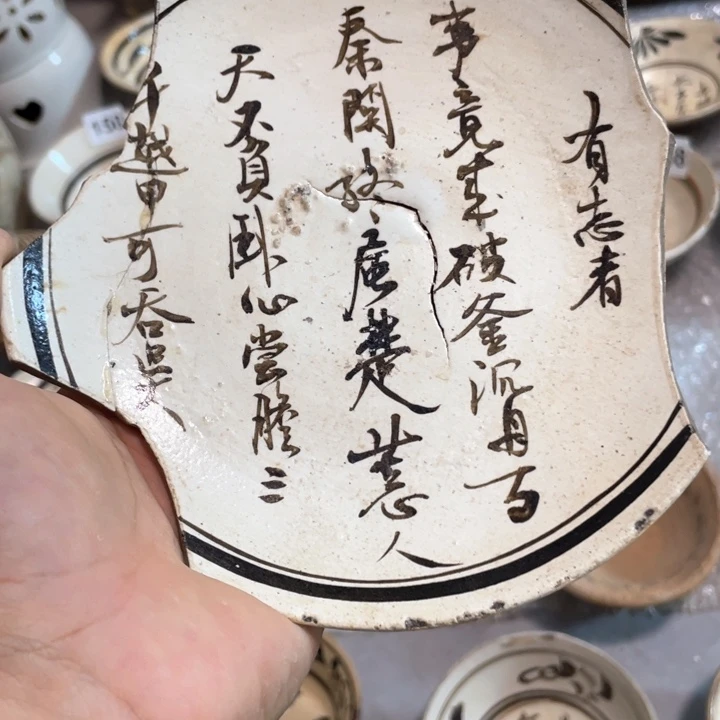 有志者
事竟成破釜沉舟百
秦関终屬楚苦心人
天不負卧心嘗膽三
千越甲可吞吳